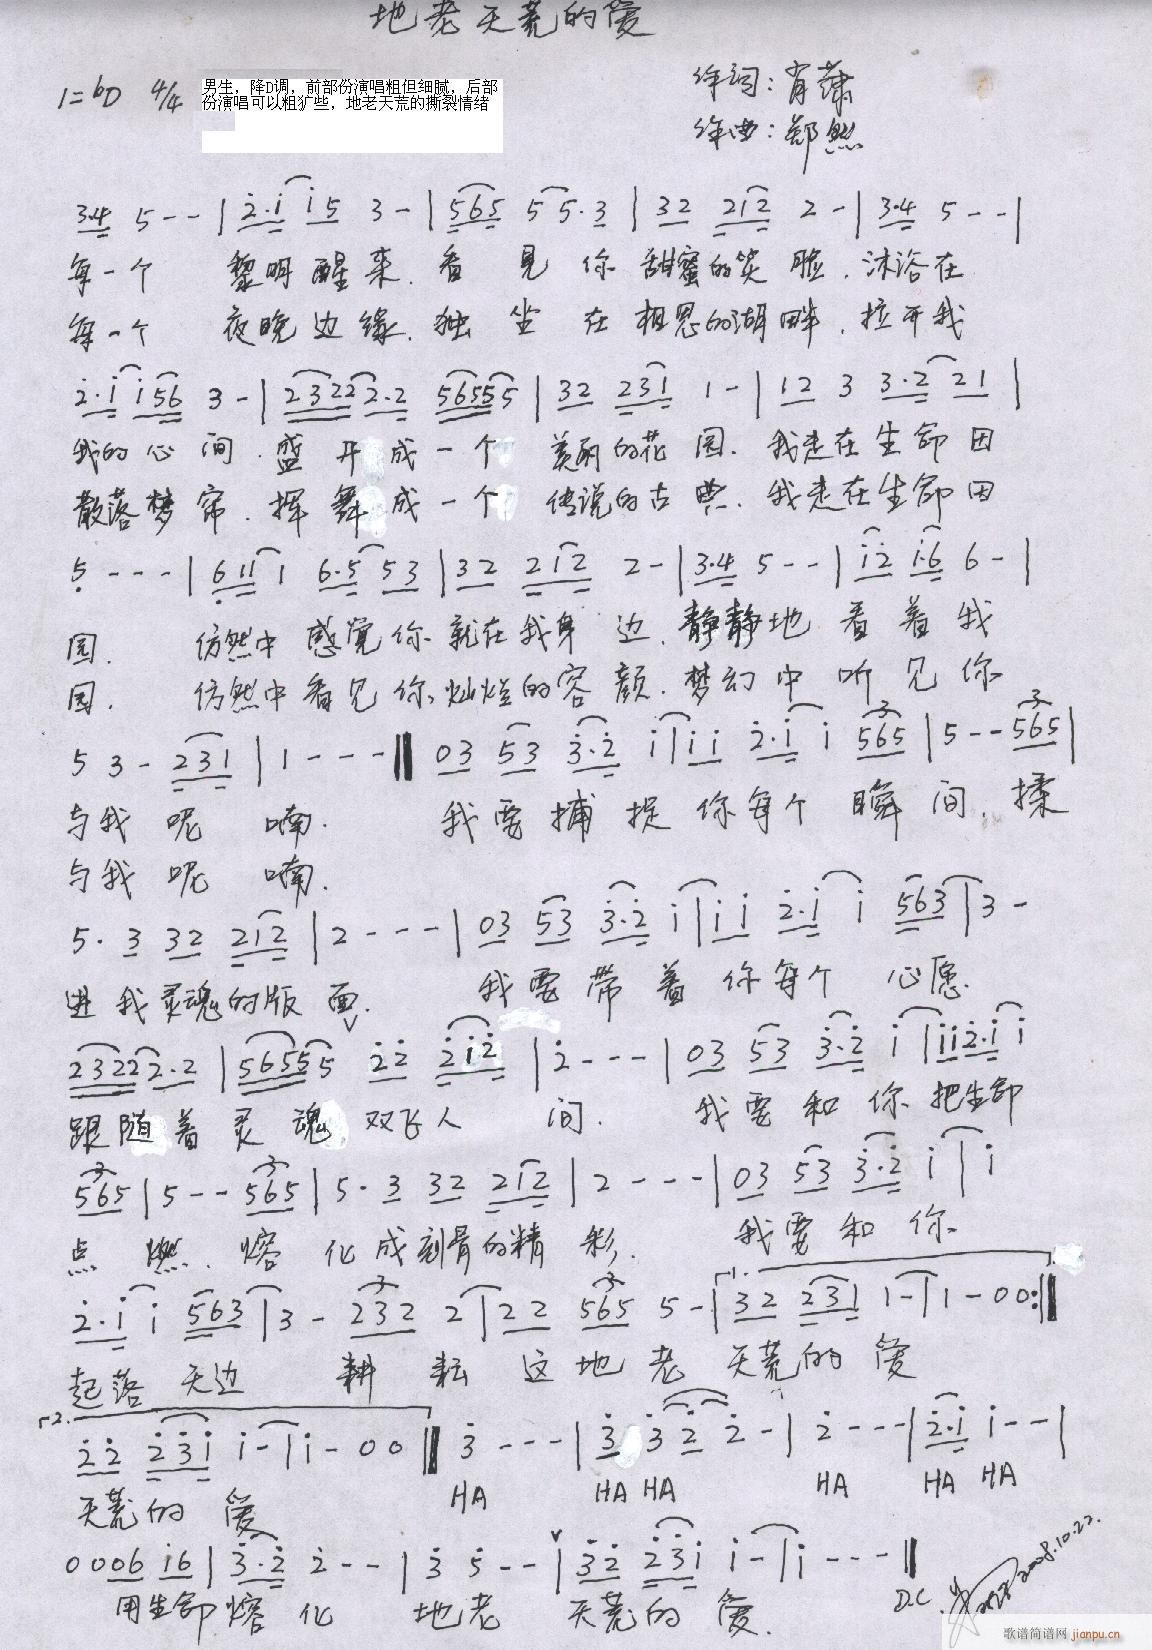 地老天荒的爱
1=bD 4/4
男生，降D调，前部份演唱粗但细腻，后部
份演唱可以粗犷些，地老天荒的撕裂情绪
作词：肖萧
作曲：郑然
3·4 5 - - | 2·1 1 5 3 - | 5 6 5 5 5·3 | 3 2 2 1 2 2 - | 3·4 5 - - |
每一个 黎明醒来，看见你甜蜜的笑脸，沐浴在
每一个 夜晚边缘，独坐在相思的湖畔，拉开我
2·1 1 5 6 3 - | 2 3 2 2 2·2 5 6 5 5 5 | 3 2 2 3 1 1 - | 1 2 3 3·2 2 1 |
我的心间，盛开成一个美丽的花园，我走在生命田
散落梦帘，挥舞成一个传说的古典，我走在生命田
5 - - - | 6 1 1 1 6·5 5 3 | 3 2 2 1 2 2 - | 3·4 5 - - | 1 2 1·6 6 - |
园， 仿然中感觉你就在我身边，静静地看着我
园， 仿然中看见你灿烂的容颜，梦幻中听见你
5 3 - 2 3 1 | 1 - - - ‖ 0 3 5 3 3·2 1 | 1 1 2·1 1 5 6 5 | 5 - - 5 6 5 |
与我呢喃． 我要捕捉你每个瞬间，揉
与我呢喃．
5·3 3 2 2 1 2 | 2 - - - | 0 3 5 3 3·2 1 | 1 1 2·1 1 5 6 3 | 3 -
进我灵魂的版面． 我要带着你每个心愿
2 3 2 2 2·2 | 5 6 5 5 5 2 2 2 1 2 | 2 - - - | 0 3 5 3 3·2 1 | 1 1 2·1 1
跟随着灵魂双飞人间． 我要和你把生命
5 6 5 | 5 - - 5 6 5 | 5·3 3 2 2 1 2 | 2 - - - | 0 3 5 3 3·2 1 | 1
点燃．熔化成刻骨的精彩． 我要和你
2·1 1 5 6 3 | 3 - 2 3 2 2 | 2 2 5 6 5 5 - | 1. 3 2 2 3 1 1 - | 1 - 0 0 :‖
起落天边 耕耘这地老天荒的爱
2. 2 2 2 3 1 1 - | 1 - 0 0 ‖ 3 - - - | 3 3 2 2 - | 2 - - - | 2·1 1 - - |
天荒的爱 HA HA HA HA HA HA
0 0 0 6 1 6 | 3·2 2 - - | 3 5 - - | 3 2 2 3 1 1 - | 1 - - - ‖
用生命熔化 地老天荒的爱．
D.C.
2008.10.22.
歌谱简谱网 jianpu.cn